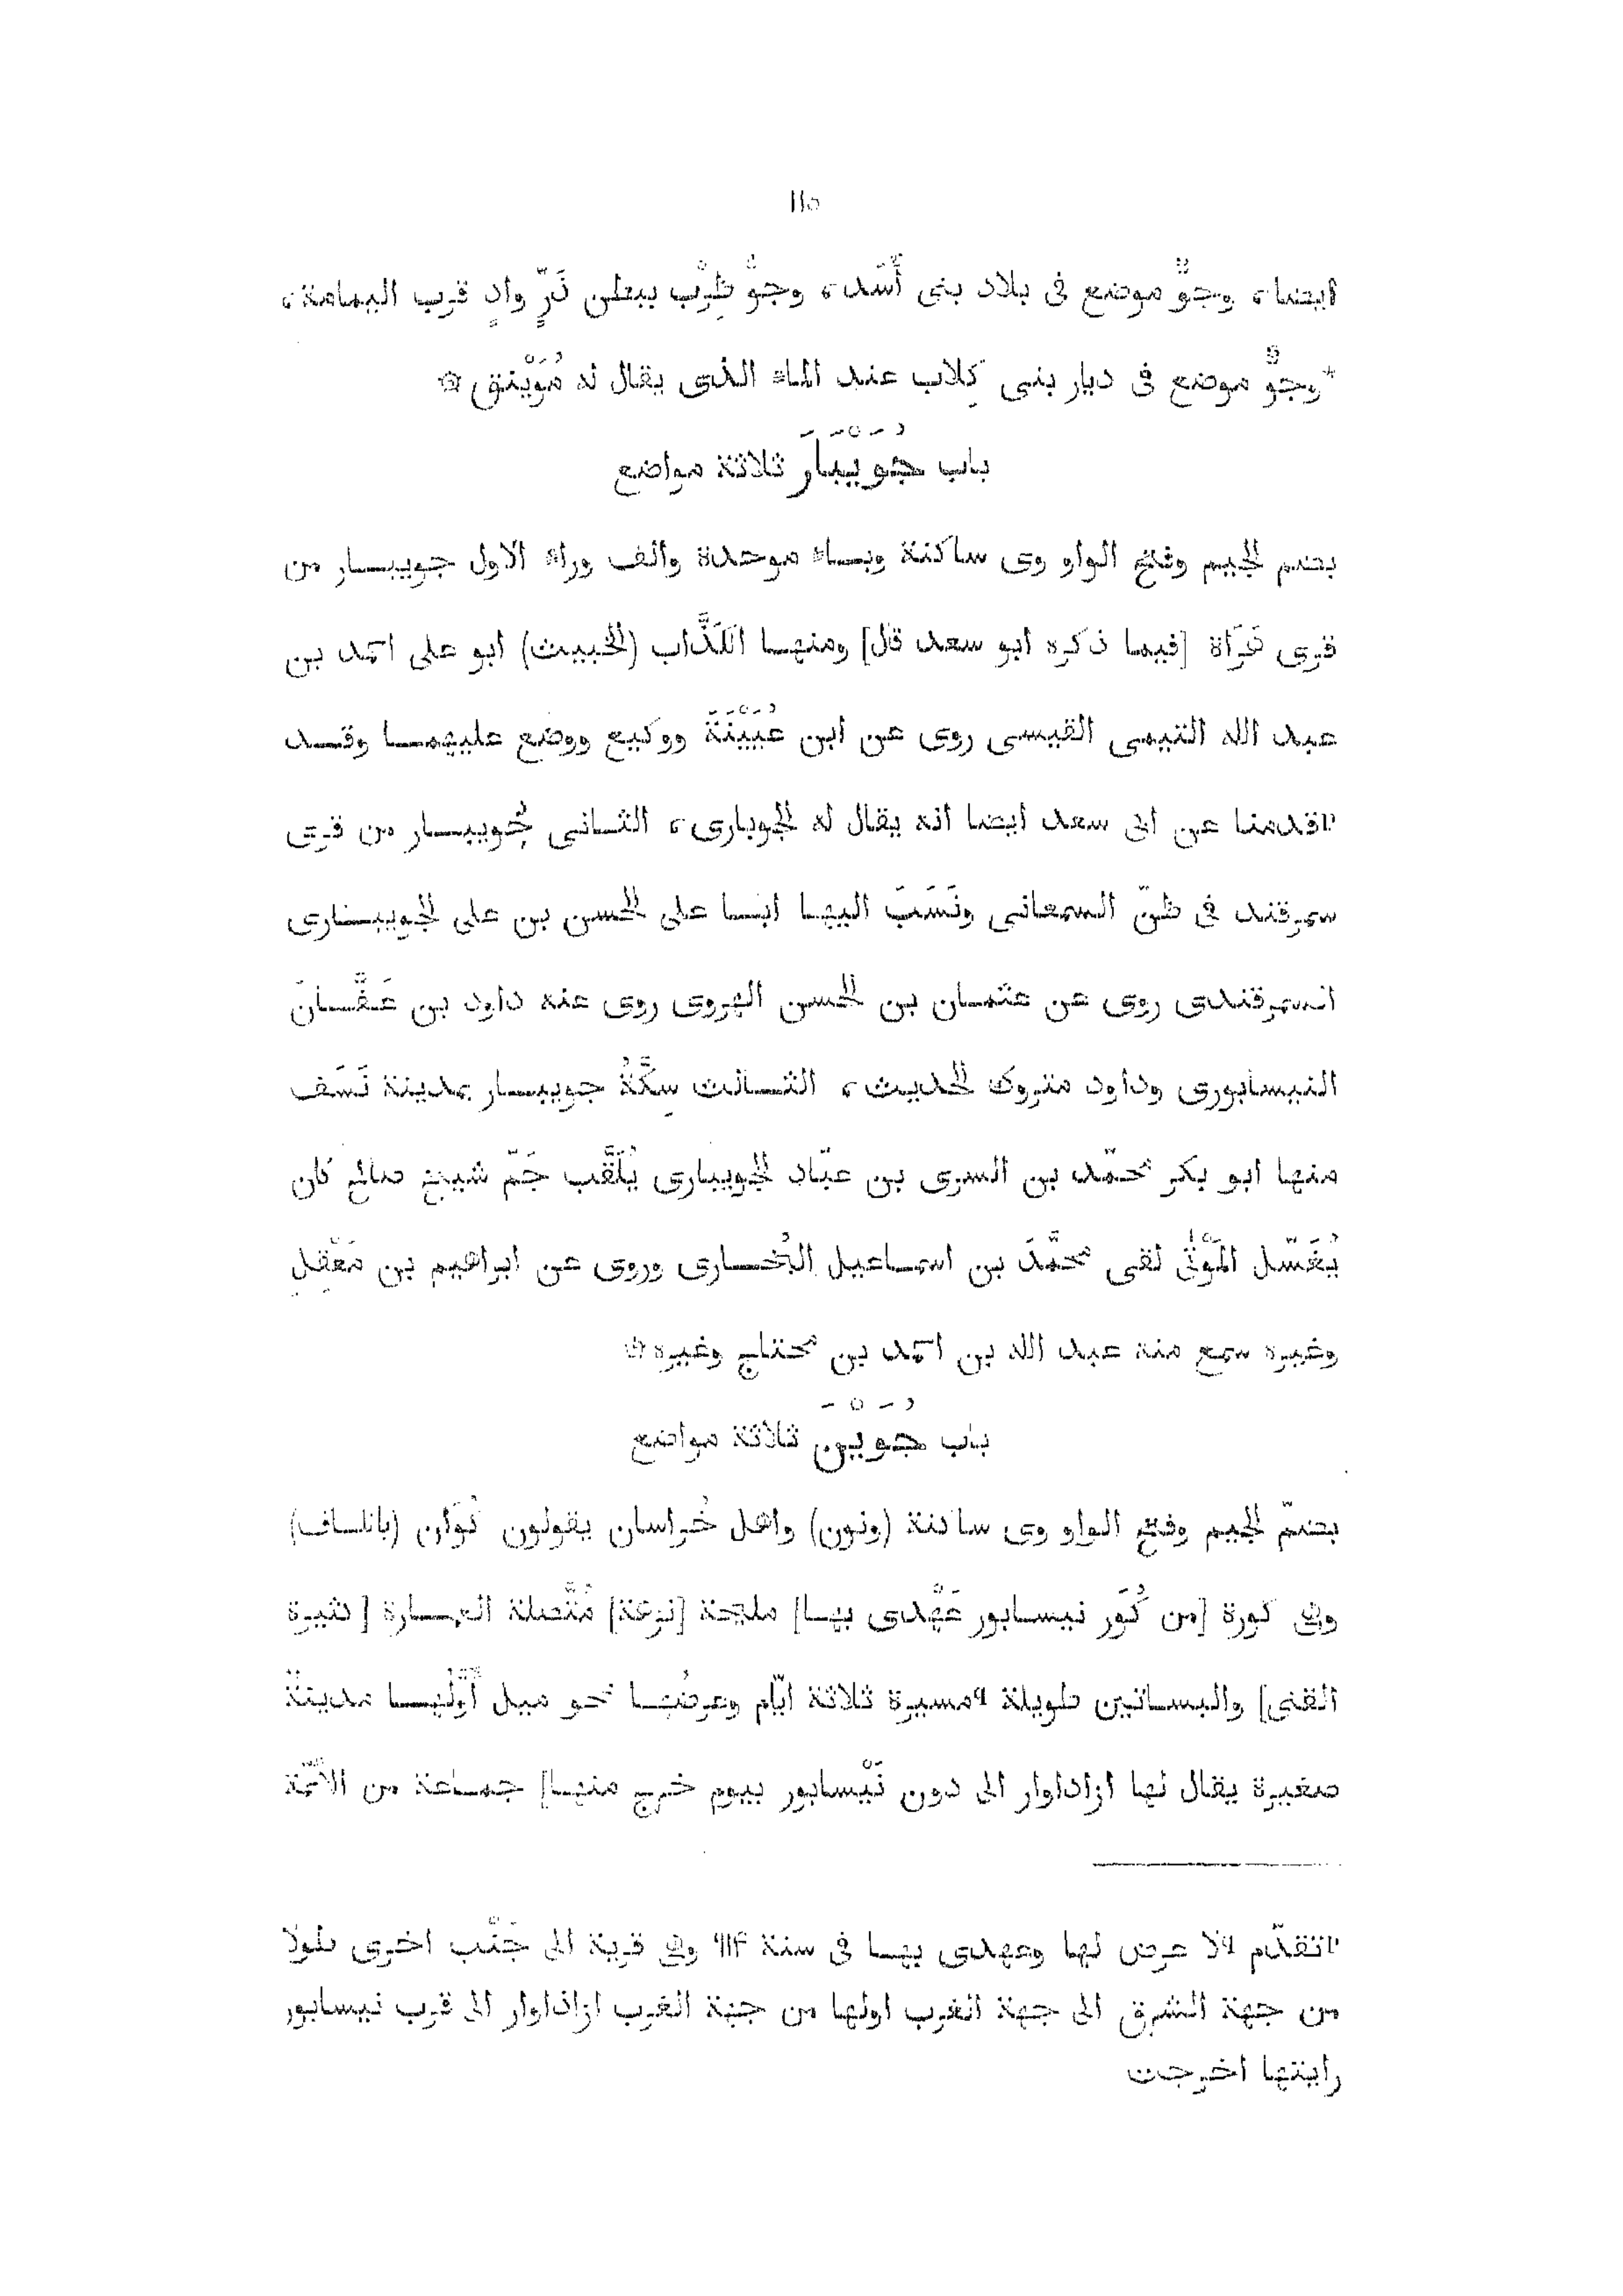 ١١٥
ايضا، وجوٌّ موضع فى بلاد بنى أَسَد، وجوُّ ظِرْب ببطن ذَرٍّ وادٍ قرب اليمامة،
*وجوٌّ موضع فى ديار بنى كِلاب عند الماء الذى يقال له مُوَيْنق ۞
باب جُوَيْبَارَ ثلاثة مواضع
بضم الجيم وفتح الواو وى ساكنة وباء موحدة والف وراء الاول جويبار من
قرى هَرَاة [فيما ذكره ابو سعد قال] ومنها الكَذَّاب (الخبيث) ابو على احمد بن
عبد الله التيمى القيسى روى عن ابن عُيَيْنَةَ ووكيع ووضع عليهما وقد
١قدمنا عن ابى سعد ايضا انه يقال له الجوبارى، الثانى جُويبار من قرى
سمرقند فى ظنّ السمعانى ونَسَبَ اليها ابا على الحسن بن على الجويبارى
السمرقندى روى عن عثمان بن الحسن الهروى روى عنه داود بن عَفَّانَ
النيسابورى وداود متروك الحديث، الثالث سِكَّةُ جويبار بمدينة نَسَف
منها ابو بكر محمّد بن السرى بن عبّاد الجويبارى يُلَقَّب جَمّ شيخ صالح كان
يُغَسّل المَوْتَى لقى محمَّدَ بن اسماعيل البُخارى وروى عن ابراهيم بن مَعْقِل
وغيره سمع منه عبد الله بن احمد بن محتاج وغيره ۞
باب جُوَيْنَ ثلاثة مواضع
بضمّ الجيم وفتح الواو وى ساكنة (ونون) واهل خُراسان يقولون كُوَان (بالكاف)
وهى كورة [من كُوَر نيسابور عَهْدى بها] مليحة [نزهة] مُتَّصلة العمارة [كثيرة
القنى] والبساتين طويلة ٩مسيرة ثلاثة ايّام وعرضُها نحو ميل أَوَّلُها مدينةٌ
صغيرة يقال لها ازاداوار الى دون نَيْسابور بيوم خرج منها] جماعة من الائمّة
١تقدّم ٩لا عرض لها وعهدى بها فى سنة ٦١٣ وهى قرية الى جَنْب اخرى طولا
من جهة الشرق الى جهة الغرب اولها من جهة الغرب ازاذاوار الى قرب نيسابور
رايتها اخرجت